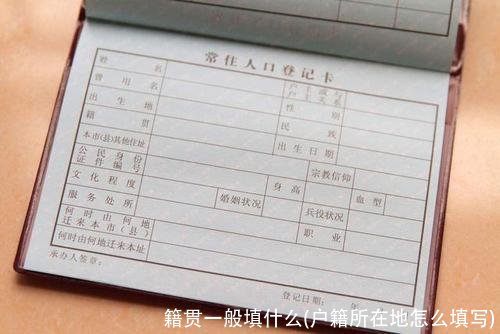 常住人口登记卡
姓名 户主或与户主关系
曾用名 性别
出生地 民族
籍贯 出生日期
本市(县)其他住址 宗教信仰
公民身份证件编号 身高 血型
文化程度 婚姻状况 兵役状况
服务处所 职业
何时由何地迁来本市(县)
何时由何地迁来本址
承办人签章: 登记日期: 年
籍贯一般填什么(户籍所在地怎么填写)